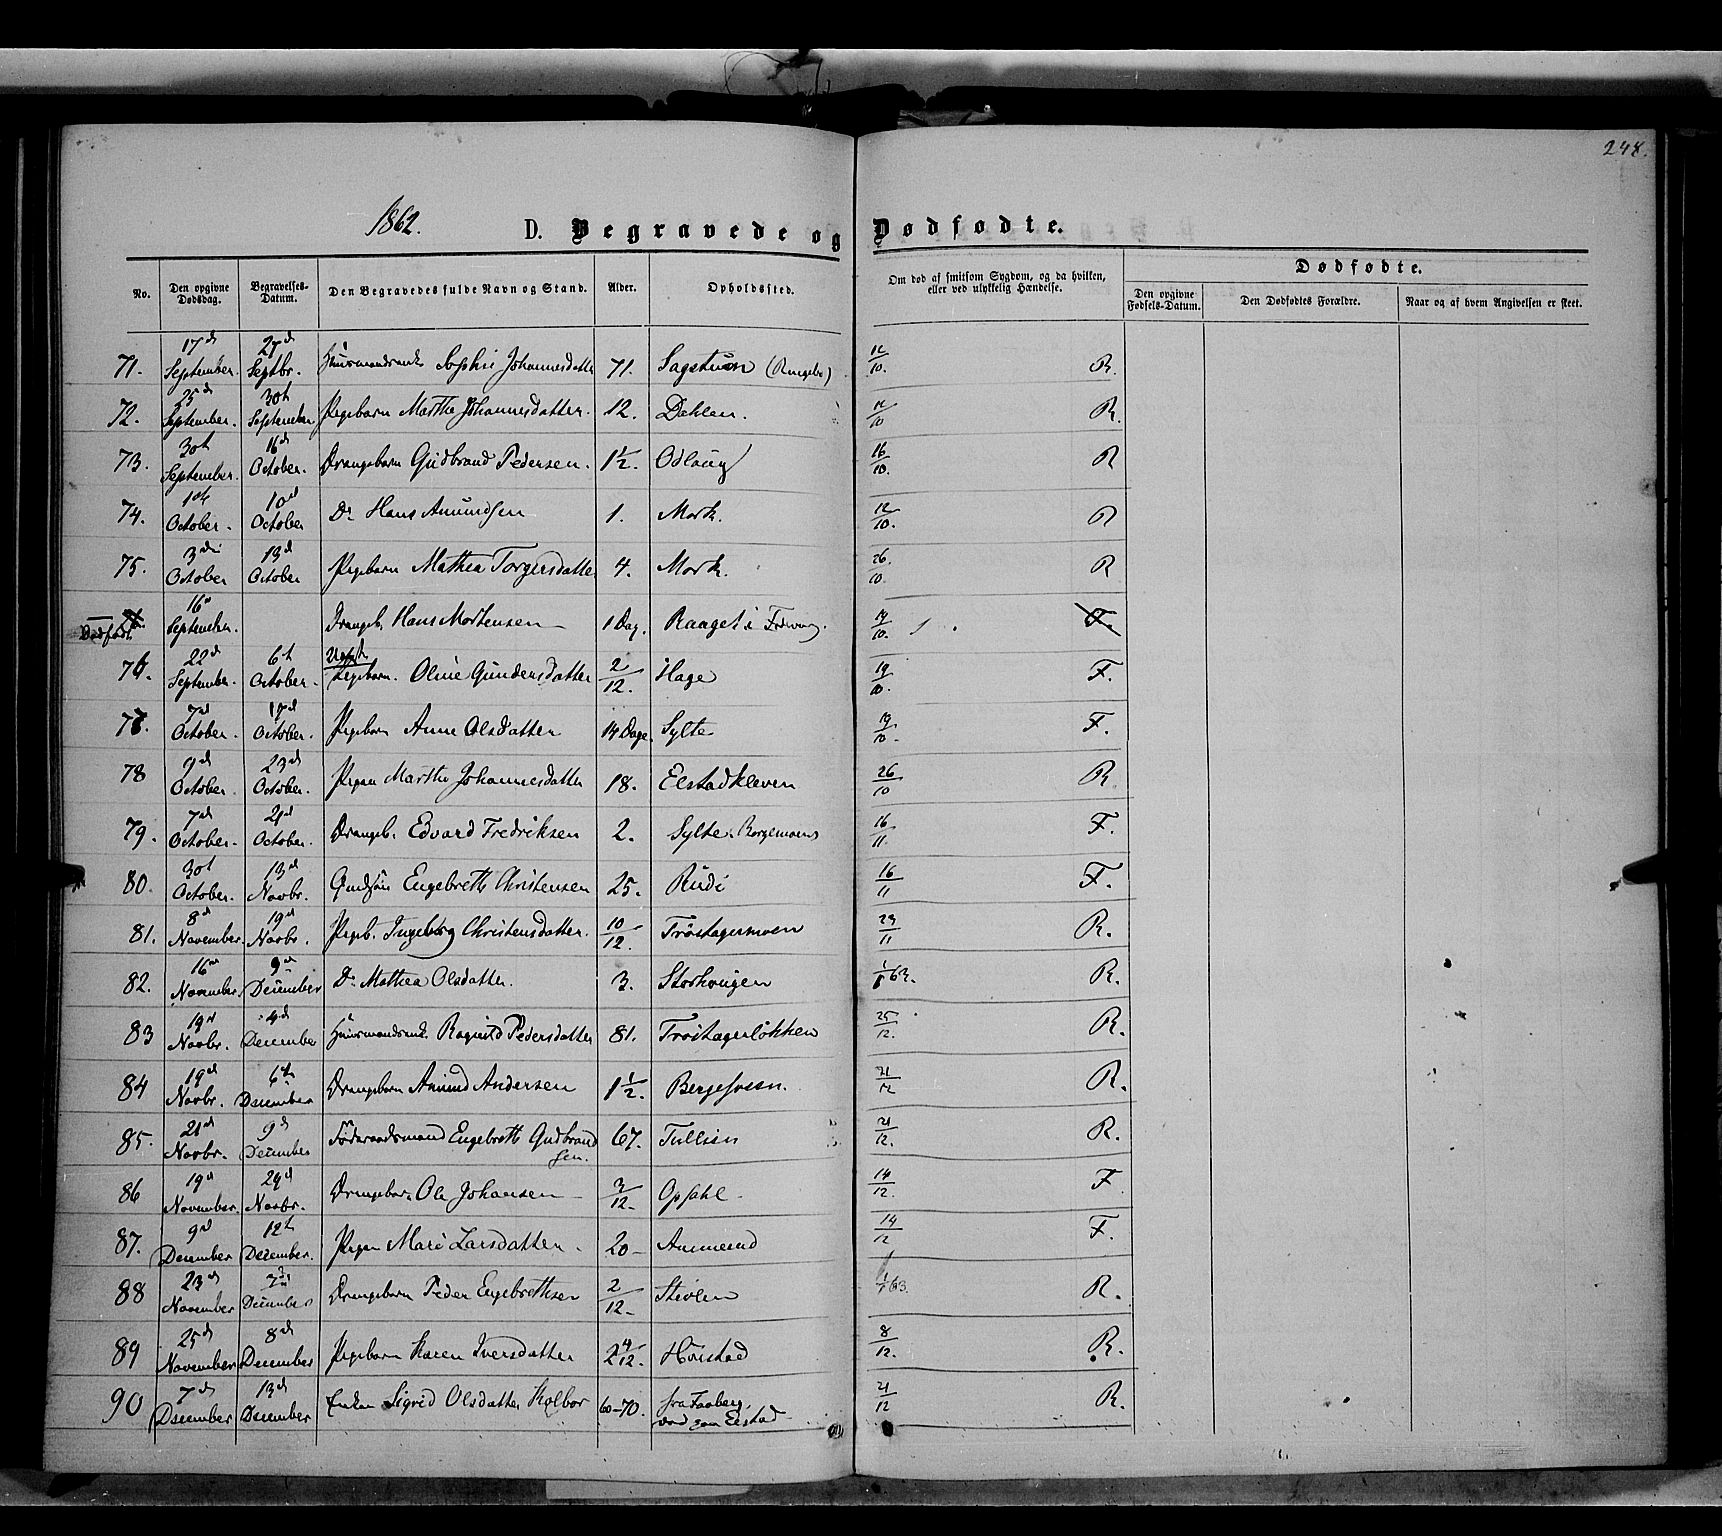 248.
1862.
D. Begravede og Dødfødte.
No.
Den opgivne Dødsdag.
Begravelses-Datum.
Den Begravedes fulde Navn og Stand.
Alder.
Opholdssted.
Om død af smitsom Sygdom, og da hvilken, eller ved ulykkelig Hændelse.
Dødfødte.
Den opgivne Fødsels-Datum.
Den Dødfødtes Forældre.
Naar og af hvem Angivelsen er skeet.
71. 17d September. 27d Septbr. Sophie Johannesdatter 71. Sagstuen (Ringebo) 12/10. R.
72. 25d September. 30t September Pigebarn Marthe Johannesdatter. 12. Dahlen. 12/10 R.
73. 30t September. 16d October. Drengebarn Gudbrand Pedersen. 1 1/2. Odlaug 16/10. R
74. 1ste October. 10d October Do Hans Amundsen 1. Mork. 12/10. R
75. 3die October 13d October Pigebarn Mathea Torgersdatter 4. Mork. 26./10. R
Dødfødt 16d September. Drengeb. Hans Mortensen 1 Dag. Raaget i 19/10. F.
76. 22d September. 6t October. Pigebarn. Oline Gundersdatter 2/12. Hage 19/10. F.
77. 7d October. 17d October. Pigebarn Anne Olsdatter 14 Dage. Sylte 19/10. F.
78 9d October. 23d October. Pigen Marthe Johannesdatter 18. Elstadkleven 26/10 R
79. 7d October. 21d October. Drengeb. Edvard Fredriksen 2. Sylte 16/11. F.
80. 30t October. 13d Novbr. Engebreth Christensen 25. Rudi 16/11 F.
81. 8d November. 19d Novbr. Pigeb. Ingeborg Christensdatter. 10/12. Trøstagermoen 23/11 R.
82. 16d November. 9d December Do Mathea Olsdatter. 3. Storhougen 1/1 63. R.
83 19d Novbr. 4d December Huusmandsenke Ragnild Pedersdatter 81. Trøstagerløkken 25/12. R.
84 19d Novbr. 6te December Drengebarn Amund Andersen 1 1/2. 21/12 R.
85. 21d Novbr. 9d December Føderaadsmand Engebreth Gudbrand
sen. 67. Tullien 21/12. R.
86 19d November. 29d Novbr. Drengebarn Ole Johansen 3/12. Opsahl 14/12. F
87. 9d December 12te December. Pigen Mari Larsdatter. 20 14/12 F.
88 23d November 7d December Drengebarn Peder Engebrethsen 2/12. Stevlen 1/1 63. R.
89 25d November 8d December Pigebarn Karen Iversdatter 2 4/12. Harstad 8/12. R.
90 7d December 13d December Enken Sigrid Olsdatter Kolbor 60-70. fra Faaberg,
død paa Elstad 21/12 R.